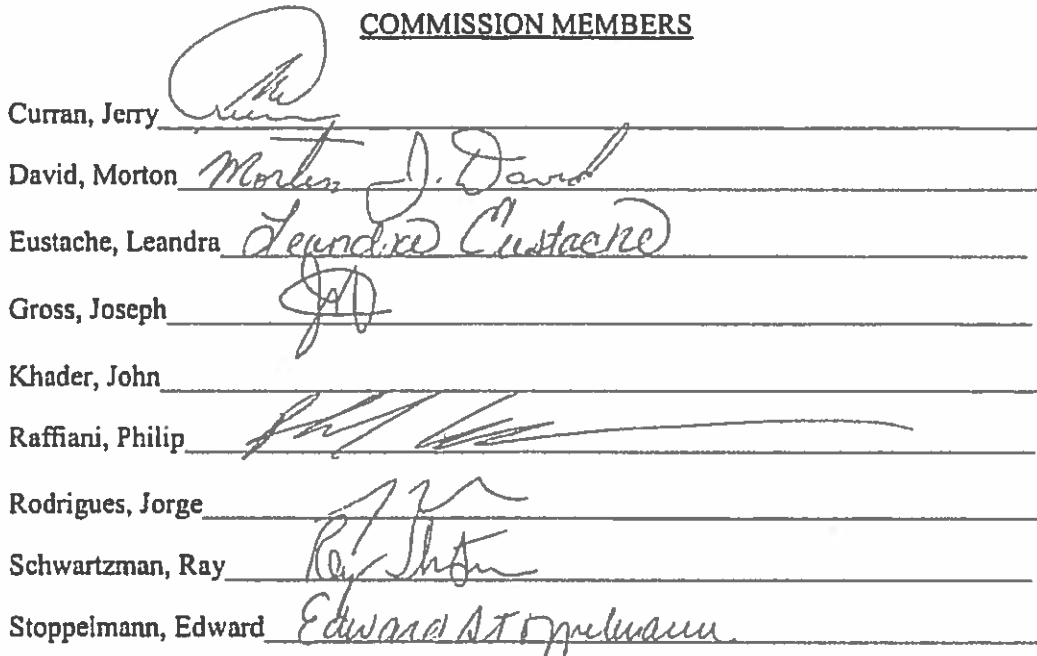 COMMISSION MEMBERS
Curran, Jerry
David, Morton Morton J. David
Eustache, Leandra Leandra Eustache
Gross, Joseph
Khader, John
Raffiani, Philip
Rodrigues, Jorge
Schwartzman, Ray Ray
Stoppelmann, Edward Edward Stoppelmann